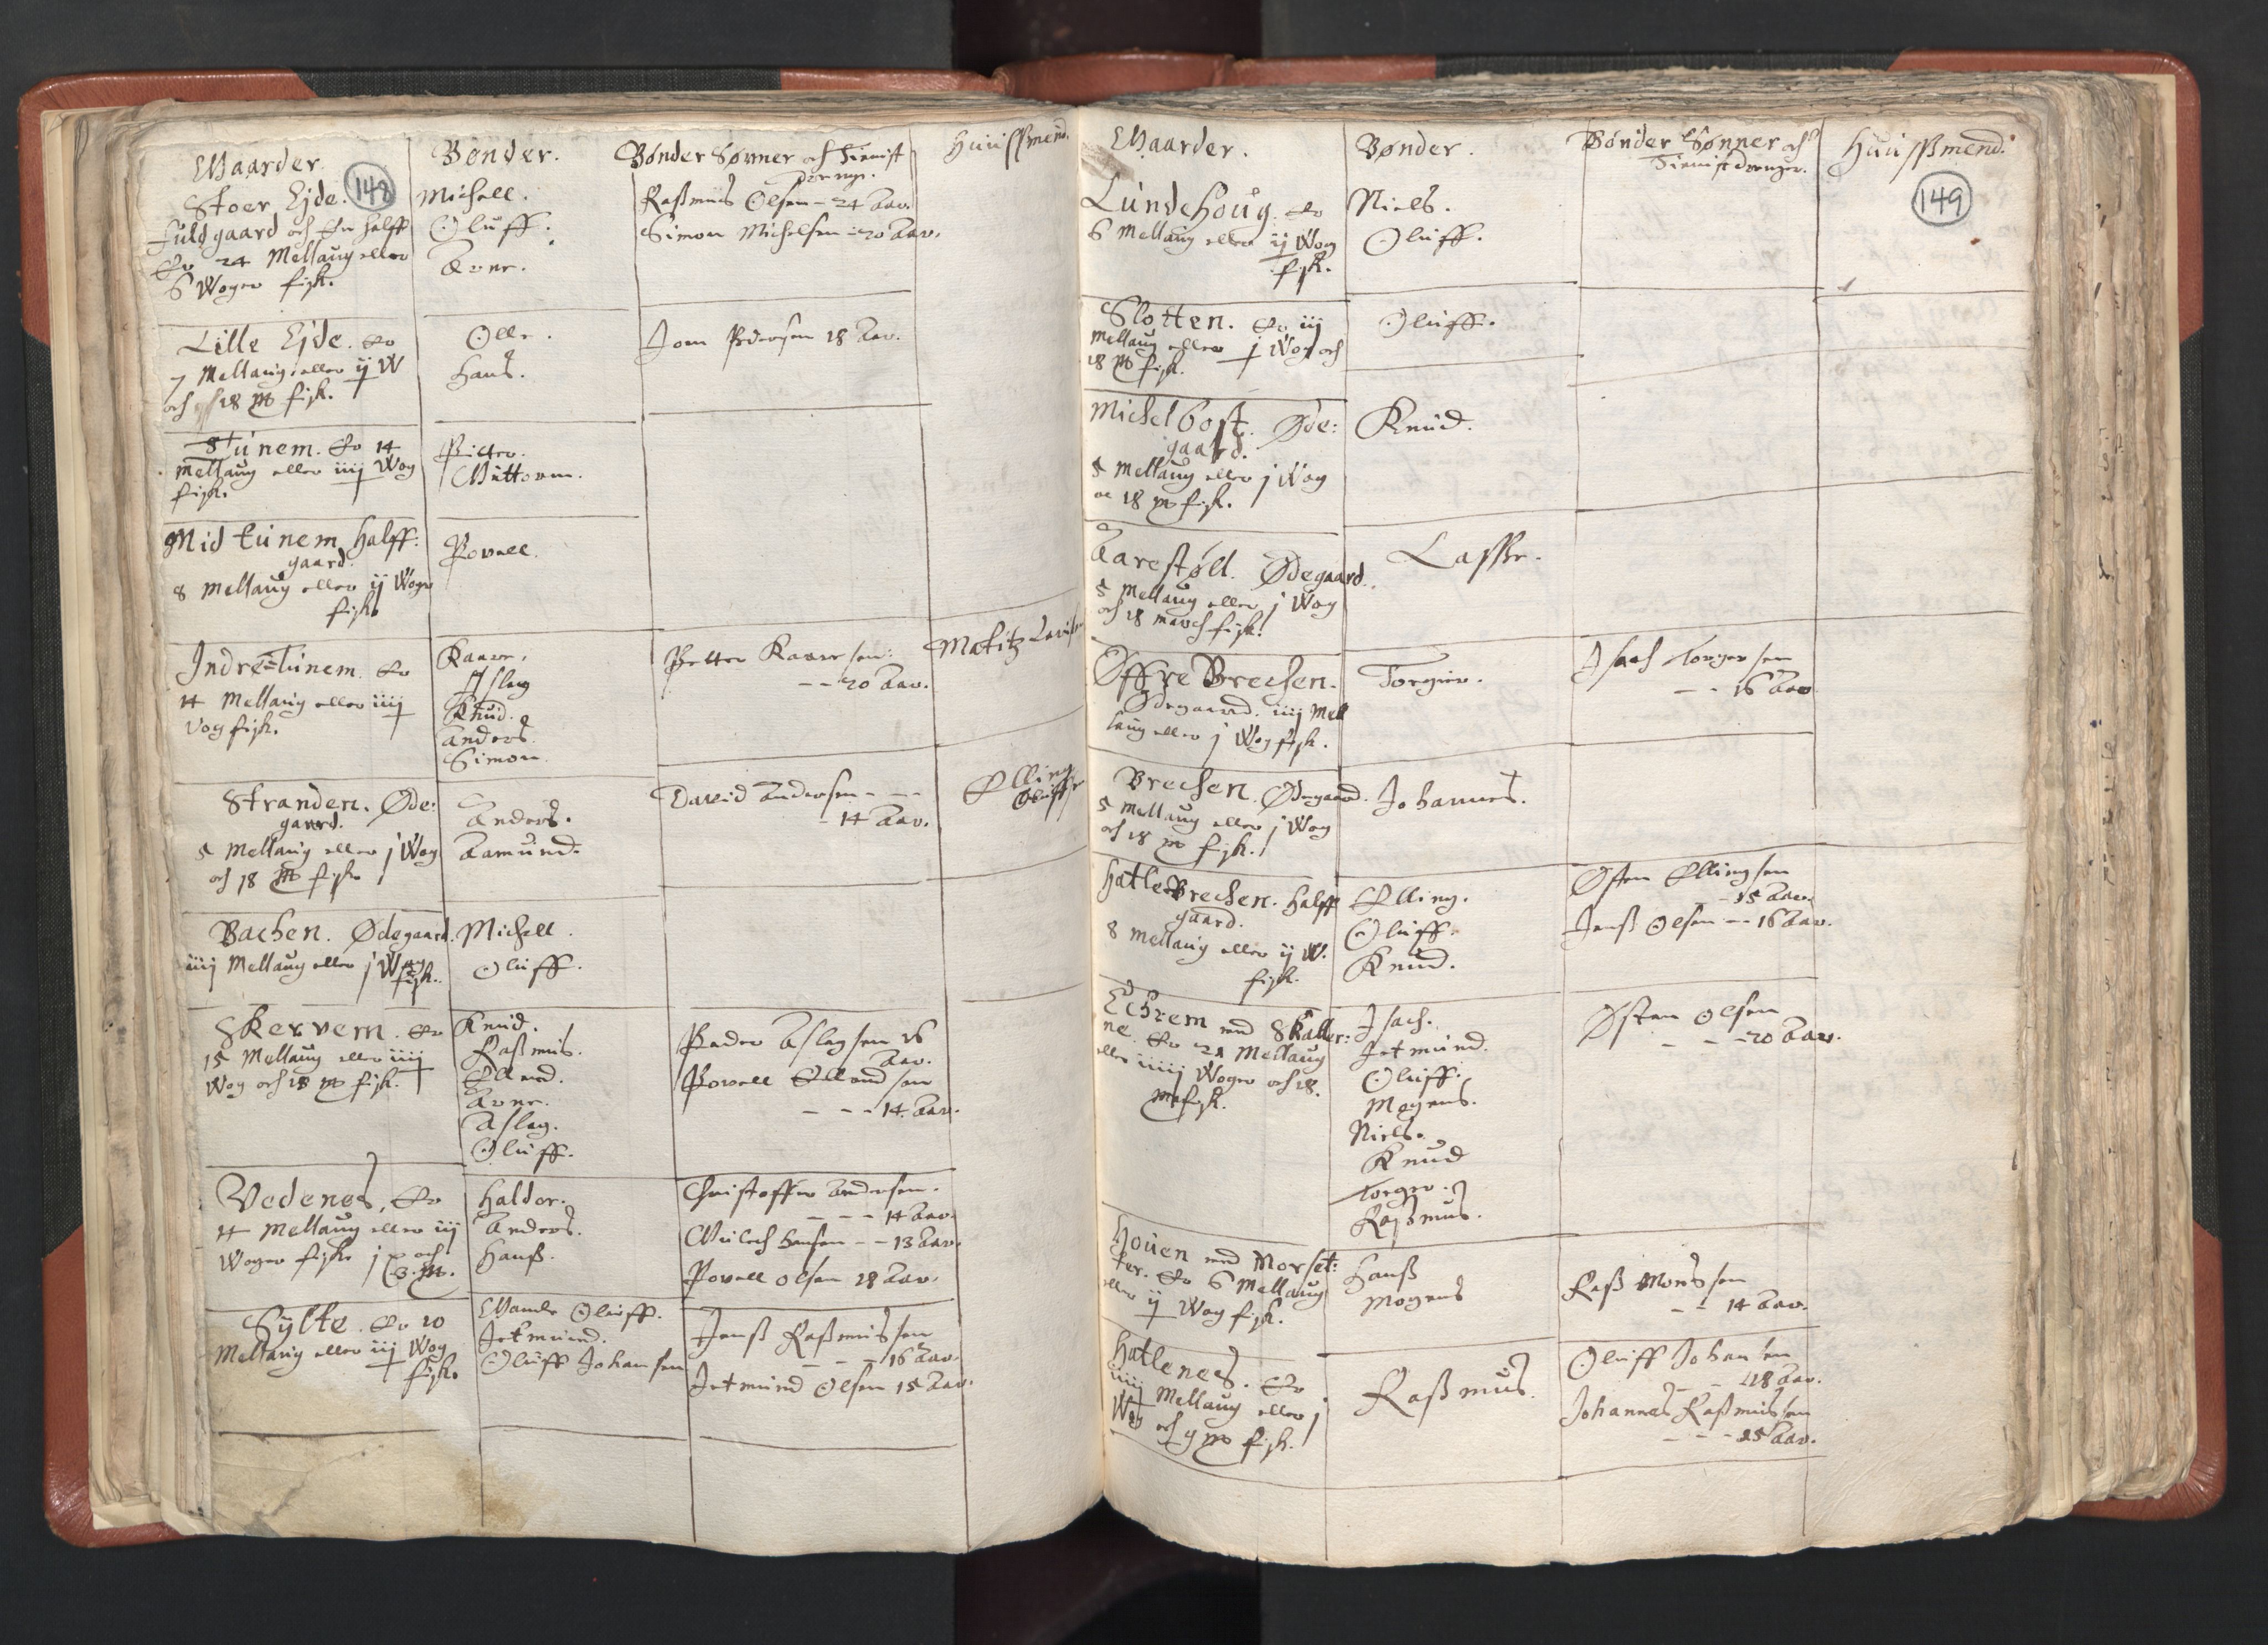 Gaarder.
148
Bønder.
Bønder Sønner och Tienist
drenge.
Huussmend.
Stoer Ejde.
fuldgaard och En halff
Er 24 Mellaug eller
6 Woger fisk.
Michell.
Oluff.
Arne.
Rassmus Olsen - 24 Aar.
Simon Michelsen - 20 Aar.
Lille Ejde. Er
7 Mellaug eller ij W
och 18 M fisk.
Olle.
Hans.
Joen Pedersen 18 Aar.
Stunem. Er 14
Mellaug eller iiij Wog
fisk.
Pitter.
Guttorm.
Mid tunem halff:
gaard.
8 Mellaug eller ij Woger
fisk
Povell.
Indre-tunem. Er
14 Mellaug eller iiij
Vog fisk.
Kaare.
Aslag
Knud.
Anders.
Simon.
Petter Kaaresen:
-- 20 Aar.
Matitz
Stranden. Øde:
gaard.
5 Mellaug eller j Wog
och 18 M fisk
Anders.
Aamund.
David Andersen - - -
- 14 Aar.
Elling
Bachen. Ødegaard.
iiij Mellaug eller j Wog
fisk.
Michell.
Oluff.
Skervem. Er
15 Mellaug eller iiij
Wog och 18 M fisk.
Knud.
Rassmus.
Ellend.
Arne.
Aslag.
Oluff.
Peder Aslagsen 16
Aar.
Povell Ellendsen
- - - 14 Aar.
Vedenes. Er
14 Mellaug eller iij
Woger fisk j p och
3 M.
Haldor.
Anders.
Hanss.
Christoffer Andersen.
- - - 14 Aar.
Gulech Hansen - - 13 Aar.
Povell Olsen 28 Aar.
Sylte. Er 10
Mellaug eller iij Wog
fisk.
Gamle Oluff.
Jetmund.
Oluff Johansen
Jenss Rassmussen
- - - 16 Aar.
Jetmund Olsen 15 Aar.
Gaarder.
Bønder.
Bønder Sønner och
Tienist drenger.
Huussmend.
149
Lundehoug. Er
6 Mellaug eller ij Wog
fisk.
Niels.
Oluff.
Slotten. Er iij
Mellaug eller j Wog och
18 M fisk.
Oluff.
Michelbost. Øde:
gaard.
5 Mellaug eller j Wog
oc 18 M fisk.
Knud.
Aarestøll. Ødegaard.
5 Mellaug eller j Wog
och 18 march fisk.
Lasse.
Øffre Brechen.
Ødegaard. iiij Mel
laug eller j Wog fisk.
Torgier.
Isach Torgersen
-- 16 Aar
Brechen. Ødegaard.
5 Mellaug eller j Wog
och 18 M fisk.
Johannes.
Hatle Brechen. halff
gaard.
8 Mellaug eller ij W.
fisk.
Elling.
Oluff.
Knud.
Østen Ellingsen
- - 15 Aar.
Jenss Olsen -- 16 Aar.
Echrem med Skaller:
ne. Er 21 Mellaug
eller iiiij Woger och 18.
M fisk.
Isach.
Jetmund.
Oluff.
Mogens.
Niels.
Knud
Torger.
Rassmus.
Østen Olsen
- - - 20 Aar.
Houen med Morset:
ter. Er 6 Mellaug
eller ij Wog fisk.
Hanss
Mogens
Rass Monssen
- - 14 Aar.
Hatlenes. Er
iiij Mellaug eller j
Wog och 9 M fisk.
Rassmus.
Oluff Johansen
- - 18 Aar.
Johannes Rassmussen
- - - 25 Aar.